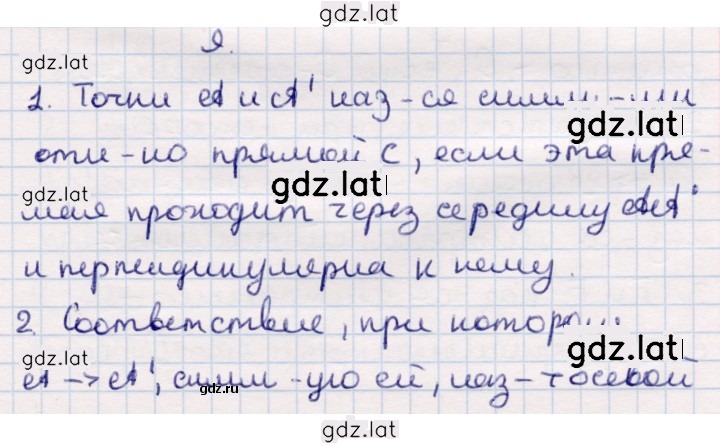 gdz.lat
Я.
gdz.lat
1. Точки A и A' наз-ся симм
gdz.lat
отн-но прямой C, если эта пря-
gdz.lat
мая проходит через середину AA'
и перпендикулярна к нему.
2. Соответствие, при котор
gdz.lat gdz.lat
A → A', симм-ую ей, наз-т осевой
gdz.ru
gdz.lat